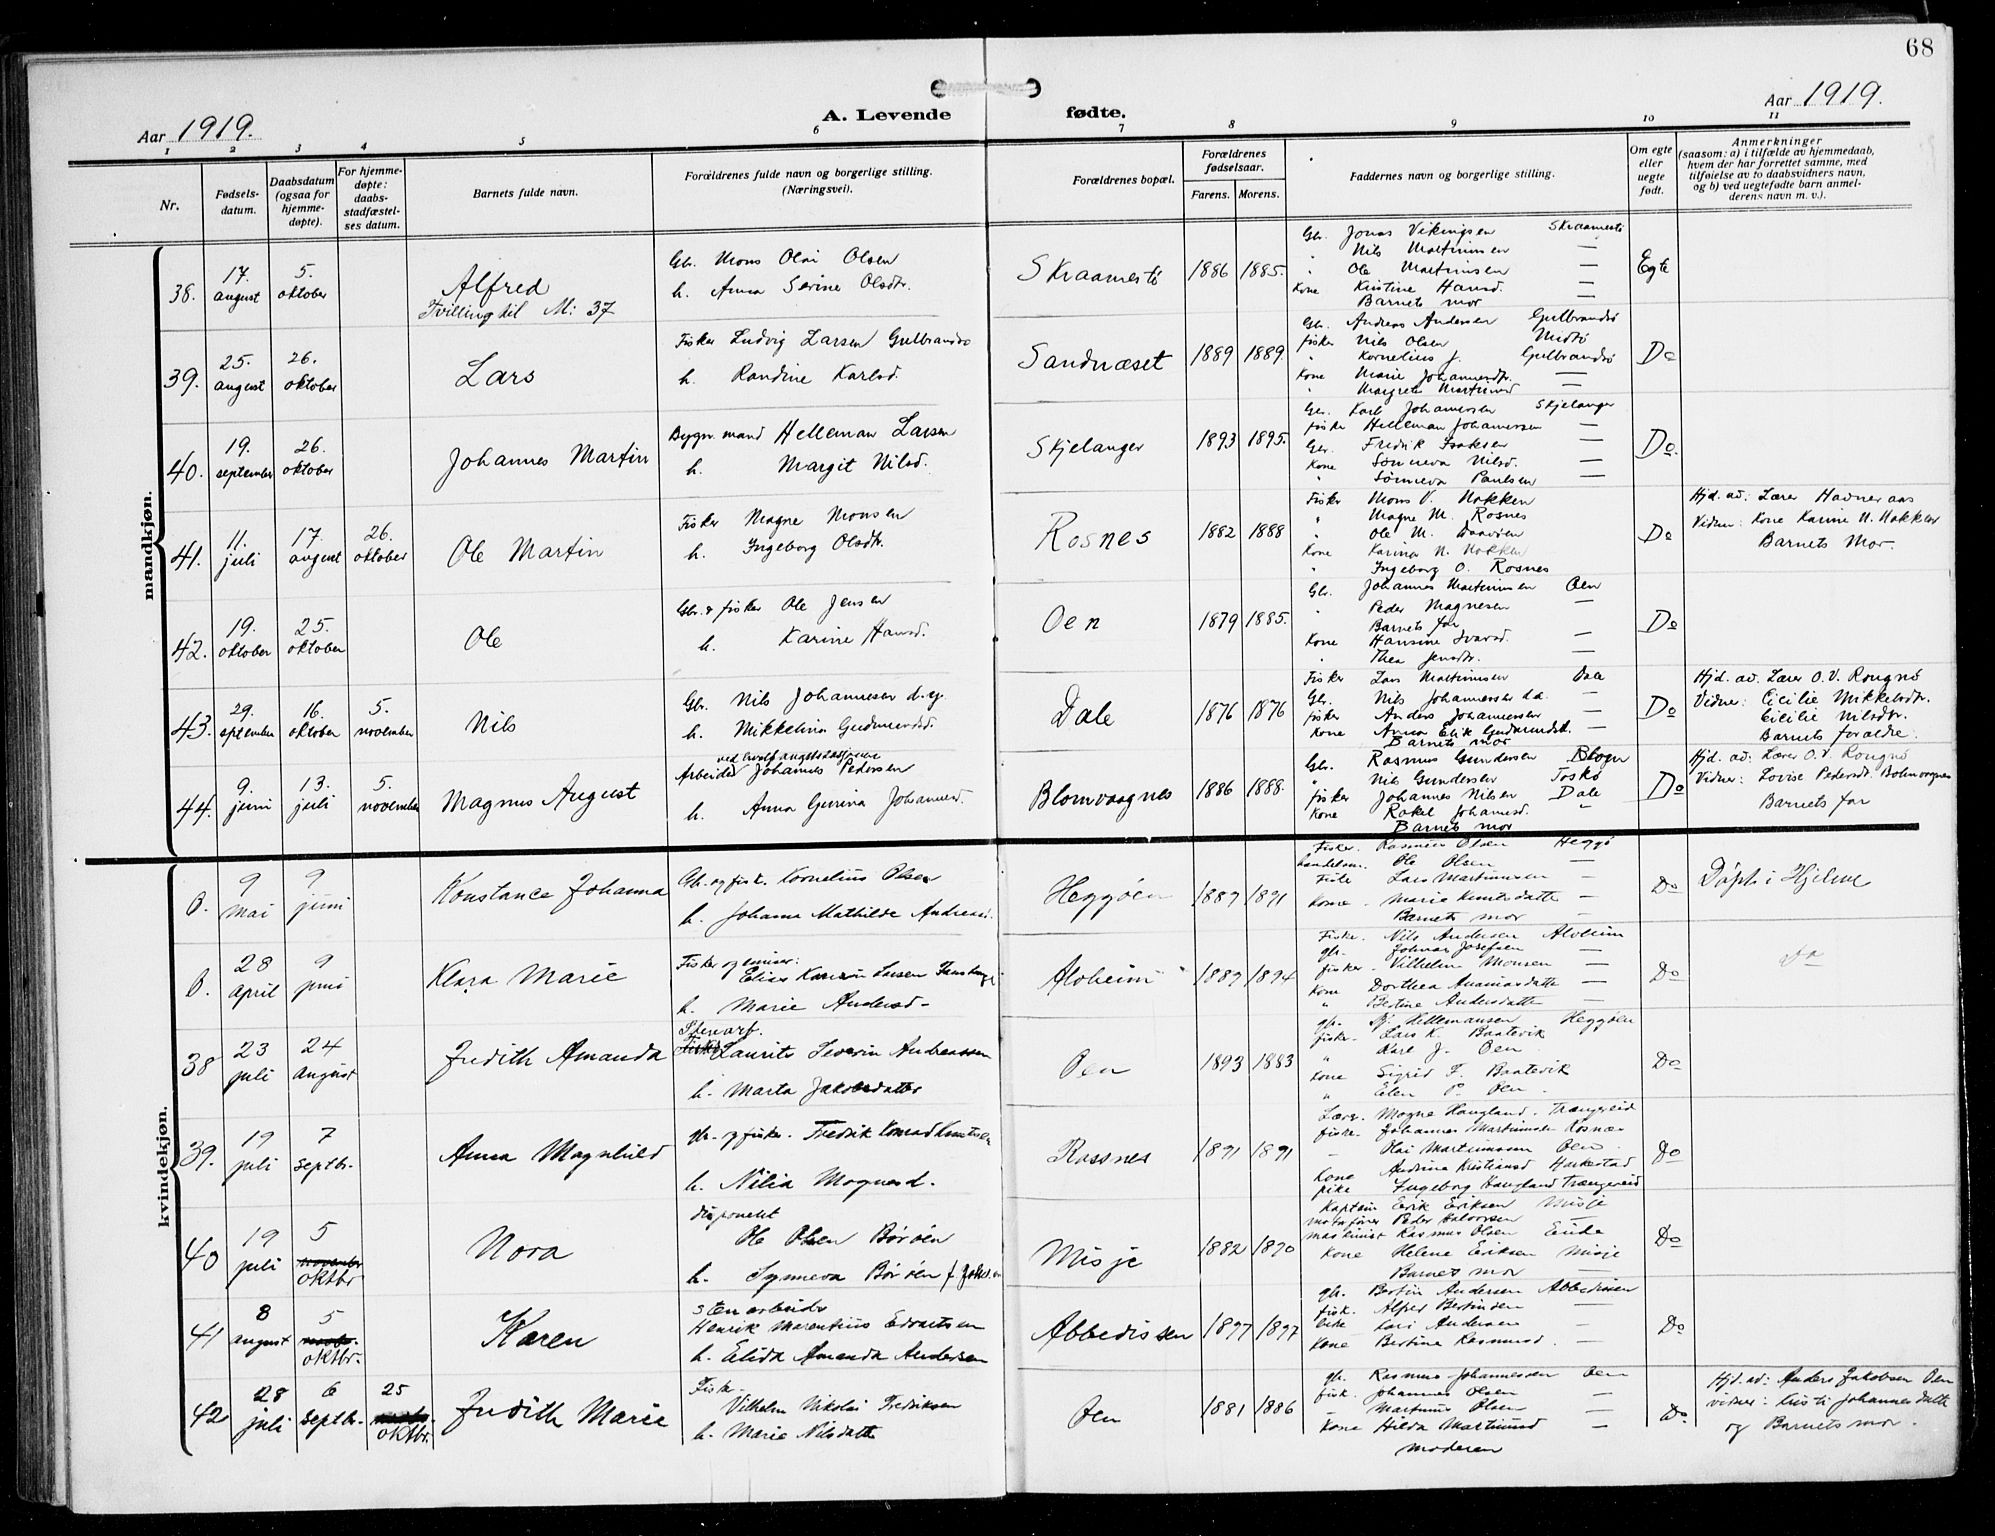 68
Aar 1919.
A. Levende fødte.
Aar 1919.
1 2 3 4 5 6 7 8 9 10 11
Nr.
Fødsels-
datum.
Daabsdatum
(ogsaa for
hjemme-
døpte).
For hjemme-
døpte:
daabs-
stadfæstel-
ses datum.
Barnets fulde navn.
Forældrenes fulde navn og borgerlige stilling.
(Næringsvei).
Forældrenes bopæl.
Forældrenes
fødselsaar.
Farens. Morens.
Faddernes navn og borgerlige stilling.
Om egte
eller
uegte
født.
Anmerkninger
(saasom: a) i tilfælde av hjemmedaab,
hvem der har forrettet samme, med
tilføielse av to daabsvidners navn,
og b) ved uegtefødte barn anmel-
derens navn m. v.).
mandkjøn.
38.
17. august
5. oktober
Alfred
Tvilling til M: 37
Gbr. Mons Olai Olsen
h. Anna Serine Olsdtr.
Skraamestø
1886 1885.
Gbr. Jonas Vikingsen Skraamestø
" Nils Martinussen —
" Ole Martinussen —
Kone Kristine Hansd. —
Barnets mor —
Egte
39.
25. august
26. oktober
Lars
Fisker Ludvig Larsen Gulbrandsø
h. Randine Karlsd.
Sandnæset
1889 1889.
Gbr. Andreas Andersen Gulbrandsø
fisker Nils Olsen Midtø
" Kornelius J. Gulbrandsø
Kone Marie Johannesdtr. —
Margrete Martinusd —
Do
40.
19. september
26. oktober
Johannes Martin
Bygn. mand Helleman Larsen
h. Margit Nilsd.
Skjelanger
1893 1895.
Gbr. Karl Johannessen Skjelanger
fisker Helleman Johannessen —
Gbr. Fredrik Isaksen —
Kone Sønneva Nilsd. —
Sønneva Paulsen —
Do.
41.
11. juli
17. august
26. oktober
Ole Martin
Fisker Magne Monsen
h. Ingeborg Olsdtr.
Rosnes
1882 1888
Fisker Mons V. Nokken
" Magne M. Rosnes
" Ole M.
Kone Karina N. Nokken
" Ingeborg O. Rosnes
Do
Hjd. av: Lærer Havneraas
Vidner: Kone Karine N. Nokken
Barnets Mor.
42.
19. oktober
25. oktober
Ole
Gbr. & fisker Ole Jensen
h. Karine Hansd.
Oen
1879 1885.
Gbr. Johannes Martinussen Oen
" Peder Magnesen —
Barnets far
Kone Hansine Ivarsd. —
" Thea Jensdtr. —
Do
43.
29. september
16. oktober
5. november
Nils
Gbr. Nils Johannesen d.y.
h. Mikkelina Gudmundsd.
Dale
1876 1876
Fisker Lars Martinussen Dale
Gbr. Nils Johannessen d.æ. —
fisker Anders Johannessen —
Kone Anna Elik Gudmundsdt. —
Barnets mor
Do
Hjd. av. Lærer O. V. Rongnø
Vidner: Cicilie Mikkelsdtr.
Cicilie Nilsdtr.
Barnets forældre.
44.
9. juni
13. juli
5. november
Magnus August
ved hvalfangststasjonen
Arbeider Johannes Pedersen
h. Anna Gurina Johannesd.
Blomvaagnes
1886 1888.
Gbr. Rasmus Gundersen Blogn
" Nils Gundersen Toskø
fisker Johannes Nilsen Dale
Kone Rakel Johannsd. "
Barnets mor
Do
Hjd. av: Lærer O. V. Rongnø
Vidner: Lovise Pedersdt.
Barnets far
kvindekjøn.
0.
9 mai
9 juni
Konstance Johanna
Gbr. og fisk. Kornelius Olsen
h. Johanne Mathilde Andreasd.
Heggøen
1887 1891
Fisker. Rasmus Olsen Heggø
handelsm. Ole Olsen —
Fiske Lars Martinussen —
Kone - Marie Knutsdatte —
Barnets mor —
Do
Døpt i Hjelme
0.
28 April
9 juni
Klara Marie
Fisker og emiser:
h. Marie Andersd-
Alvheim
1887 1894
Fiske. Nils Andersen Alvheim
gbr. Johan Josefsen —
fisker - Vilhelm Monsen —
Kone Dorthea Ananiasdatte —
" Bertine Andersdatte —
Do
Do
38
23 juli
24 August
Judith Amanda
Stenarb.
Fisker Laurits Severin Andreassen
h. Marta Jakobsdatter
Oen
1893 1883
gbr. Hellemansen Heggøen
fiske. Lars K. Baatevik
" Karl J. Oen
Kone Sigrid F. Baatevik
" Elen P. Oen.
Do
39.
19 juli
7 septbr.
Anna Magnhild
gbr. og fisker. Fredrik Konrad Knutsen
h. Nilia Mognesd.
Rossnes
1891 1891
Lærer. Mogne Haugland. Trængereid
fiske. Johannes Martinussen Rosnæs
- Olai Martinussen Oen
Kone Andrina Kristiansd Harkestad
pike Ingeborg Haugland Trængereid
Do
40
19 juli
5 november oktbr
Nora
disponent
Ole Olsen Børøen
h. Synneva Børøen f. Johs.en
Misje
1882 1890
Kaptein Eirik Eriksen Misje
motorfører Peder Halvorsen
maskinist Rasmus Olsen Eide
Kone Helene Eriksen Misje
Barnets mor —
Do
41
8 august
5 oktbr.
Karen
stenarbeider
Henrik Marentius Edvartsen
h. Elida Amanda Andersen
Abbedissen
1897 1897
gbr. Bertin Andersen Abbedissen
fisk. Alfred Bertinsen —
Kari Andersen —
Kone Bertine Rasmusd. —
Do
42
28 juli
6 septbr.
25 oktbr.
Judith Marie
Fisker
Vilhelm Nikolai Fredriksen
h. Marie Nilsdatte
Oen
1881 1886
gbr. Rasmus Johannessen Oen
fisk. Johannes Olsen —
- Martinus Olsen —
Kone Hilda Martinusd —
moderen
Do.
Hjd. ad: Anders Jakobsen Oen
vidner: Kristi Johannesdatte
og Barnets mor.